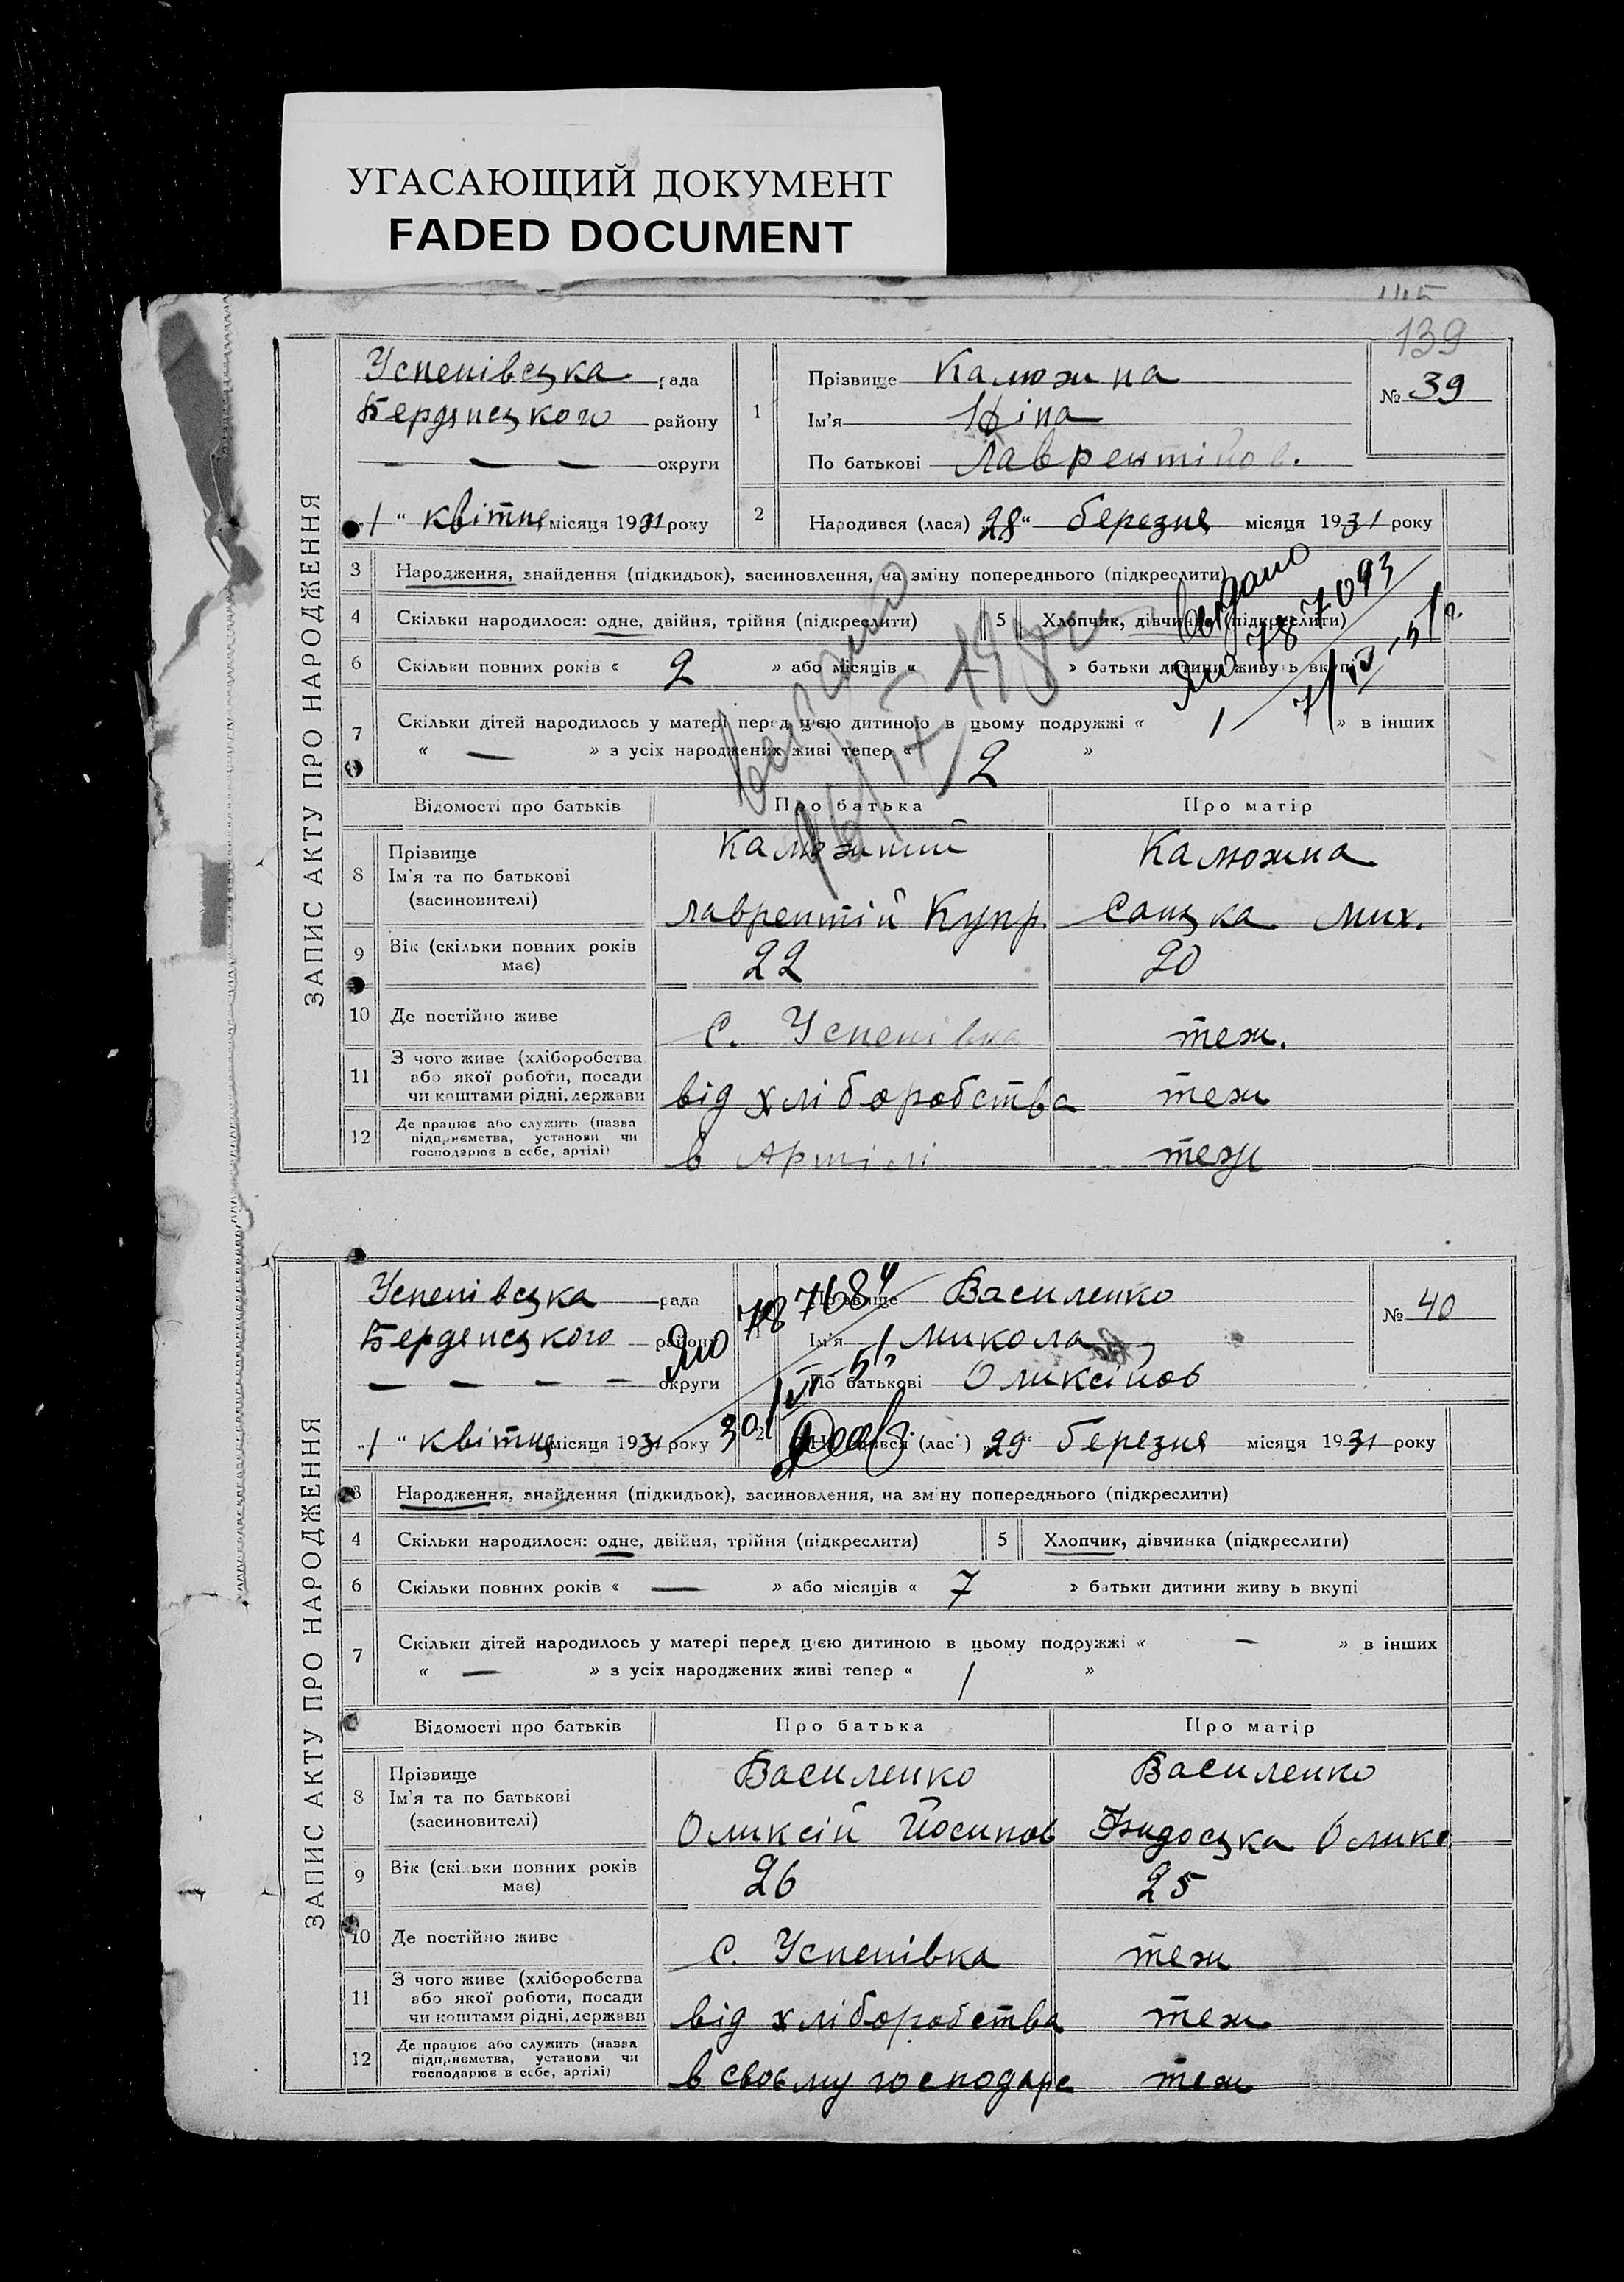 УГАСАЮЩИЙ ДОКУМЕНТ
FADED DOCUMENT
139
ЗАПИС АКТУ ПРО НАРОДЖЕННЯ
Успенівська рада
Бердянського району
— — — округи
„1“ квітня місяця 1931 року
1
Прізвище Калюжна
Ім'я Ніна
По батькові Лаврентійов.
№ 39
2 Народився (лася) 28“ березня місяця 1931 року
3 Народження, знайдення (підкидьок), засиновлення, на зміну попереднього (підкреслити)
4 Скільки народилося: одне, двійня, трійня (підкреслити) 5 Хлопчик, дівчинка (підкреслити)
видано
787093
6 Скільки повних років « 2 » або місяців « » батьки дитини живуть вкупі
7 Скільки дітей народилось у матері перед цією дитиною в цьому подружжі « 1 » в інших
« — » з усіх народжених живі тепер « 2 »
Відомості про батьків Про батька Про матір
8 Прізвище Ім'я та по батькові (засиновителі)
Калюжний Калюжна
Лаврентій Купр. Сашка Мих.
9 Вік (скільки повних років має) 22 20
10 Де постійно живе с. Успенівка теж.
11 З чого живе (хліборобства або якої роботи, посади чи коштами рідні, держави від хліборобства теж
12 Де працює або служить (назва підприємства, установи чи господарює в себе, артілі) в Артілі теж
ЗАПИС АКТУ ПРО НАРОДЖЕННЯ
Успенівська рада
Бердянського району
— — — — округи
„1“ квітня місяця 1931 року
Прізвище Василенко
Ім'я Микола
По батькові Оликсійов
№ 40
2 Народився (лась) 29“ березня місяця 1931 року
3 Народження, знайдення (підкидьок), засиновлення, на зміну попереднього (підкреслити)
4 Скільки народилося: одне, двійня, трійня (підкреслити) 5 Хлопчик, дівчинка (підкреслити)
6 Скільки повних років « — » або місяців « 7 » батьки дитини живуть вкупі
7 Скільки дітей народилось у матері перед цією дитиною в цьому подружжі « — » в інших
« — » з усіх народжених живі тепер « 1 »
Відомості про батьків Про батька Про матір
8 Прізвище Ім'я та по батькові (засиновителі)
Василенко Василенко
Оликсій Йосипов Олике
9 Вік (скільки повних років має) 26 25
10 Де постійно живе с. Успенівка теж
11 З чого живе (хліборобства або якої роботи, посади чи коштами рідні, держави від хліборобства теж
12 Де працює або служить (назва підприємства, установи чи господарює в себе, артілі) в своєму господарс теж